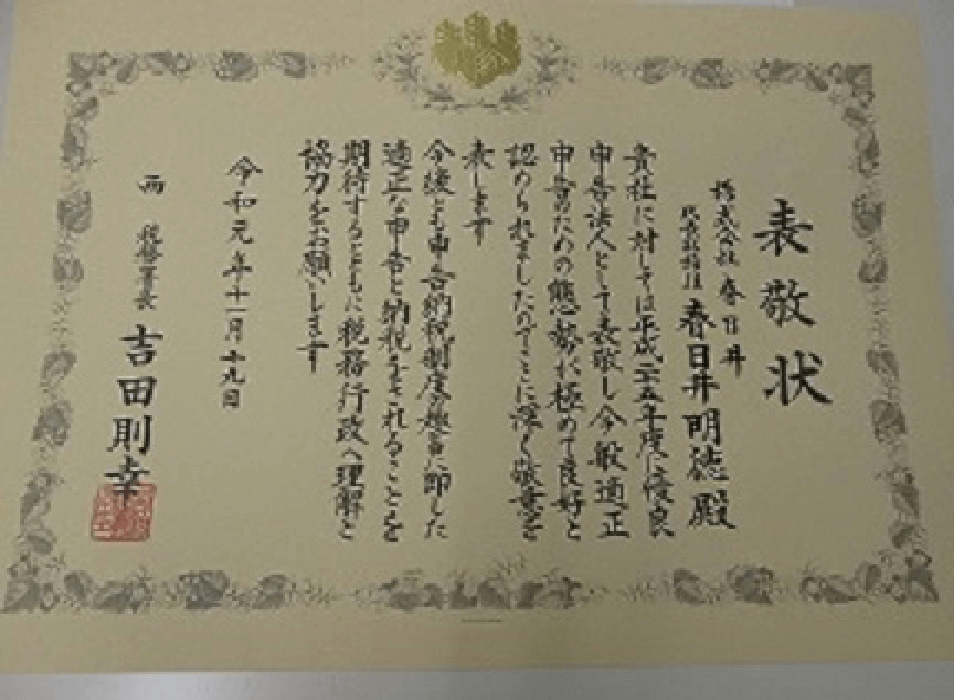 表敬状
株式会社 春日井
代表取締役 春日井明徳殿
貴社に対しては平成二五年度に優良
申告法人として表敬し今般適正
申告のための態勢が極めて良好と
認められましたのでここに深く敬意を
表します
今後とも申告納税制度の趣旨に即した
適正な申告と納税をされることを
期待するとともに税務行政へ理解と
協力をお願いします
令和元年十一月十九日
西 税務署長 吉田則幸